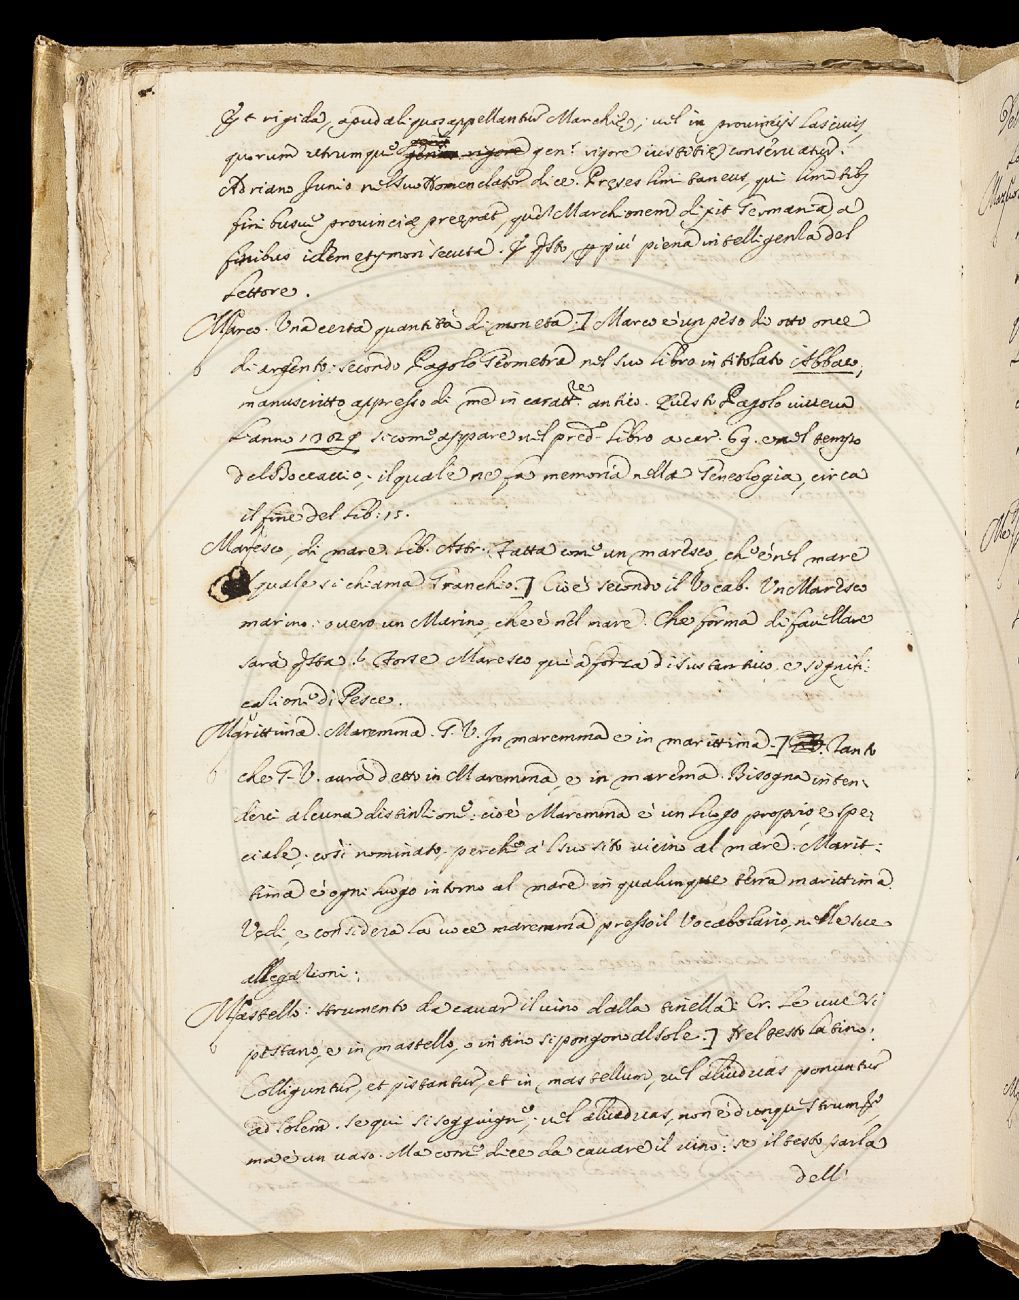 et rigida, apud aliquos appellantur Marchię, vel in provincijs lascivis,
quorum utrumque gen. rigore iustitię conservatur.
Adriano Junio nel suo Nomenclator dice. Pręses limitaneus, qui limitibus
finibusve provincię preerat, quem Marchionem dixit Germania a
finibus idem etymon secuta. E questo per più piena intelligenza del
Lettore.
Marco. Una certa quantità di moneta:] Marco è un peso di otto once
di argento: secondo Pagolo Geometra nel suo libro intitolato Abbaco,
manuscritto appresso di me in caratt.re antico. Questo Pagolo viveva
l'anno 1362 sicome appare nel pred.o libro a car. 69. e nel tempo
del Boccaccio, il quale ne fa memoria nella Geneologia, circa
il fine del Lib: 15.
Maresco, di mare. Lib. Astr. Fatta come un maresco, che è nel mare
quale si chiama Granchio.] Cioè secondo il Vocab. Un Maresco
marino: overo un Marino, che è nel mare. Che forma di favellare
sarà questa? Forse Maresco qui à forza di sustantivo, e signifi:
cazione di Pesce.
Marittima. Maremma. G.V. In maremma e in marittima.] Tanto
che G.V. avrà detto in Maremma, e in marema. Bisogna inten:
derci alcuna distinzione: cioè Maremma è un luogo proprio, e spe:
ciale, così nominato, perchè à 'l suo sito vicino al mare. Marit:
tima è ogni luogo intorno al mare in qualunque terra marittima.
Vedi, e considera la voce maremma presso il Vocabolario, nelle sue
allegazioni:
Mastello: strumento da cavar il vino dalla tinella: Cr. Le uve si
pestano, e in mastello, o in tino si pongono al sole.] Nel testo latino:
Colliguntur, et pistantur, et in mastellum, vel aliud vas ponuntur
ad solem. Se qui si soggiugne, vel aliud vas, non è dunque strum.to
ma è un vaso. Ma come dice da cavare il vino: se il testo parla
dell'